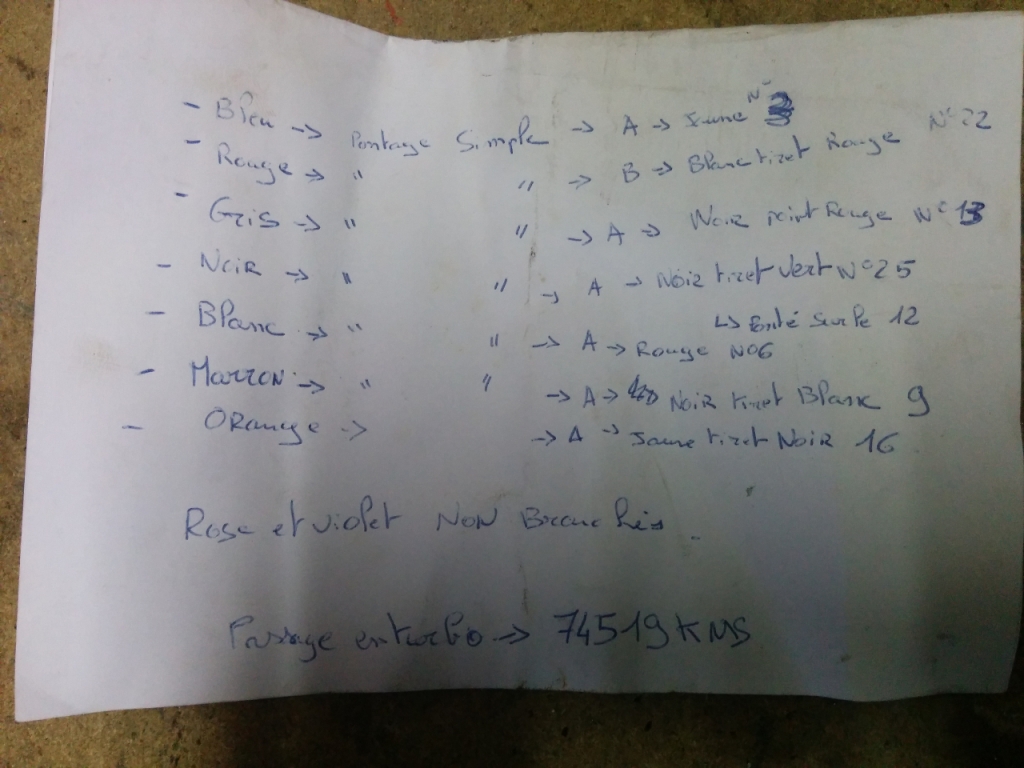 - Bleu -> Pontage Simple -> A -> Jaune N° 3
- Rouge -> " " -> B -> Blanc tiret Rouge N° 22
- Gris -> " " -> A -> Noir point Rouge N° 13
- NoiR -> " " -> A -> NoiR tiret Vert N° 25
- Blanc -> " " -> A -> Rouge N° 6
↳ Ponté sur le 12
- Marron -> " " -> A -> NoiR tiret Blanc 9
- ORange -> -> A -> Jaune tiret NoiR 16
Rose et violet NON Branchés.
Passage en turbo -> 74519 KMS